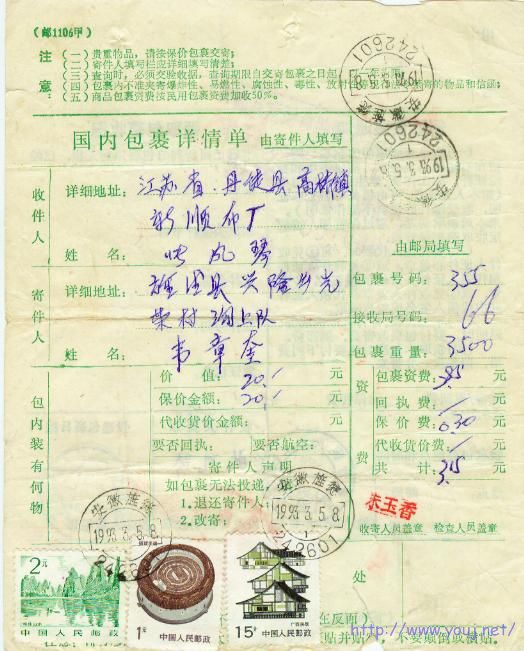 (邮1106甲)
注意:
(一)贵重物品,请按保价包裹交寄;
(二)寄件人填写栏应详细填写清楚;
(三)查询时,必须交验收据,查询期限自交寄包裹之日起
(四)包裹内不准夹寄爆炸性、易燃性、腐蚀性、毒性、放射性
寄的物品和信函;
(五)商品包裹资费按民用包裹资费加收50%。
242601
1993.3.5.8
242601
1993.3.5.8
国内包裹详情单 由寄件人填写
收件人
详细地址: 江苏省 高
新顺布厂
姓名: 凤琴
由邮局填写
寄件人
详细地址: 旌德县兴隆乡
村
姓名: 韦章奎
包裹号码: 355
接收局号码: 66
包裹重量: 3500
包内装有何物
价值: 20 元
保价金额: 20 元
代收货价金额: 元
要否回执: 要否航空:
寄件人声明
如包裹无法投递,请
1.退还寄件人:
2.改寄:
资费
包裹资费: 元
回执费: 元
保价费: 0.30 元
代收货价费: 元
共计: 3.15 元
朱玉香
收寄人员盖章 检查人员盖章
安徽旌德
1993.3.5.8
242601
安徽旌德
1993.3.5.8
242601
2元
中国人民邮政
1元
中国人民邮政
15分
中国人民邮政
处
在反面)
贴并贴大,不要颠倒或横贴。
http://www.youj.net/